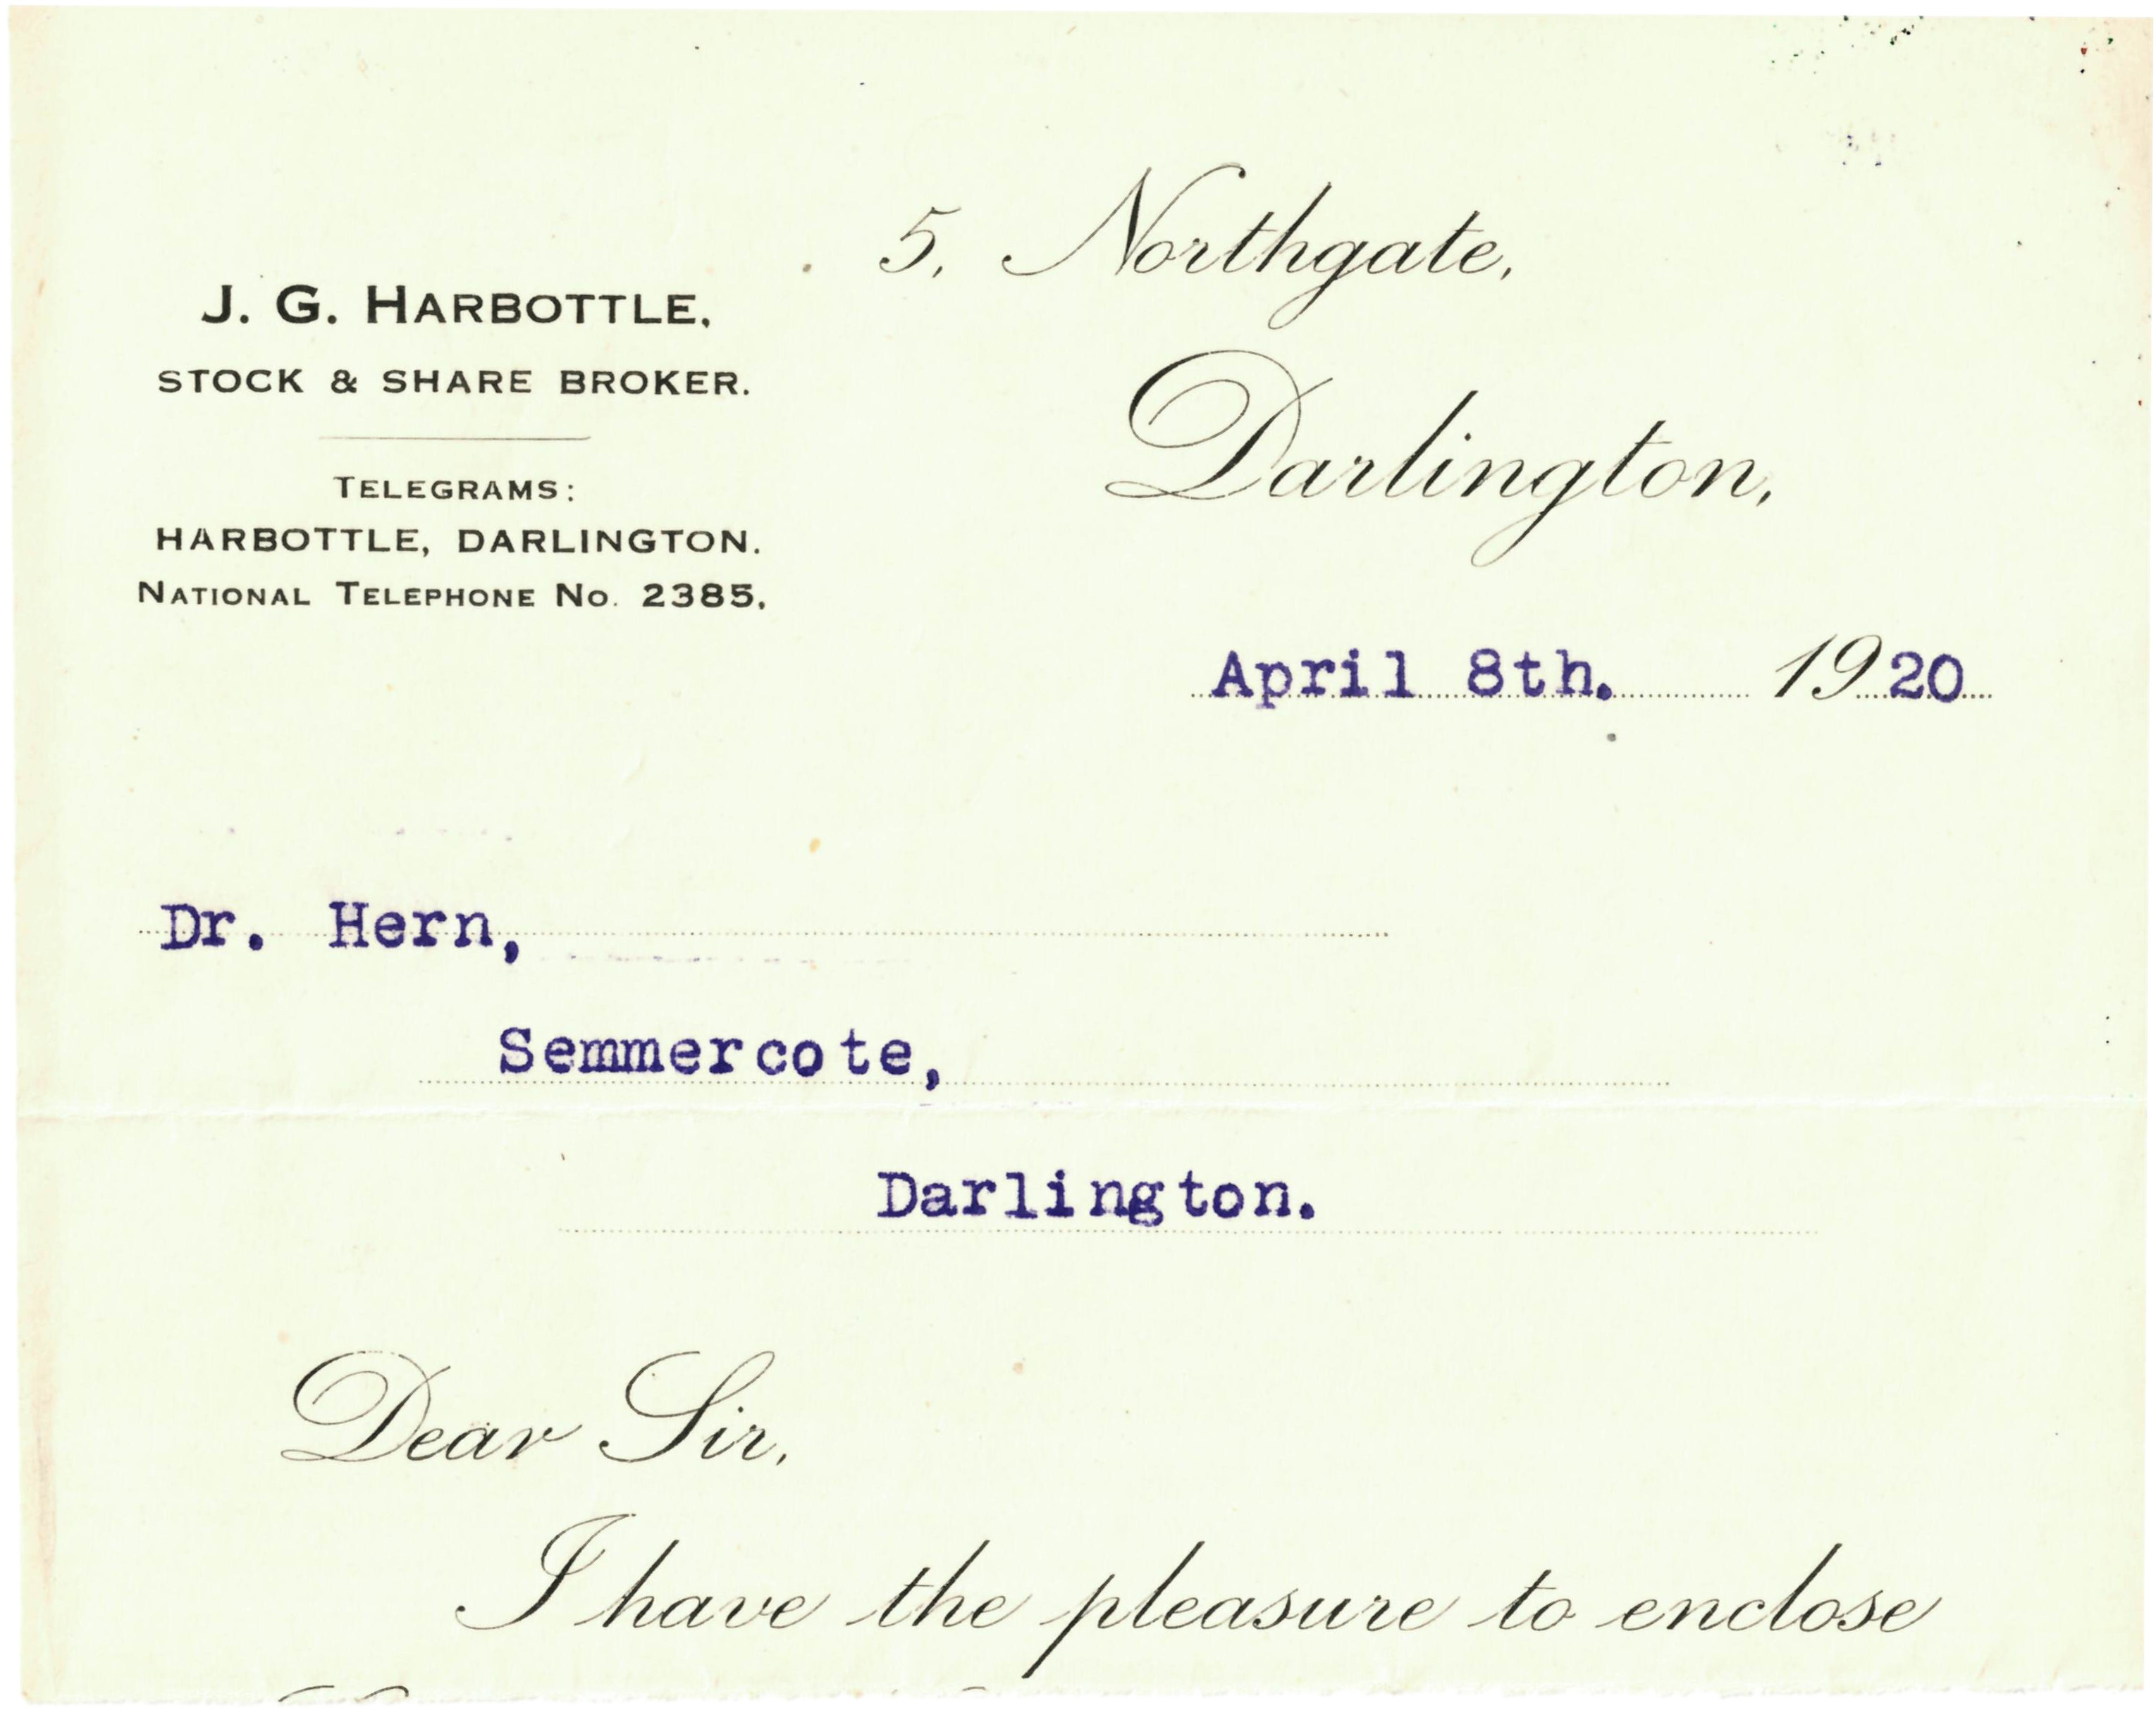 5, Northgate,
J. G. HARBOTTLE,
STOCK & SHARE BROKER.
Darlington,
TELEGRAMS:
HARBOTTLE, DARLINGTON.
NATIONAL TELEPHONE NO. 2385.
April 8th. 1920
Dr. Hern,
Semmercote,
Darlington.
Dear Sir,
I have the pleasure to enclose